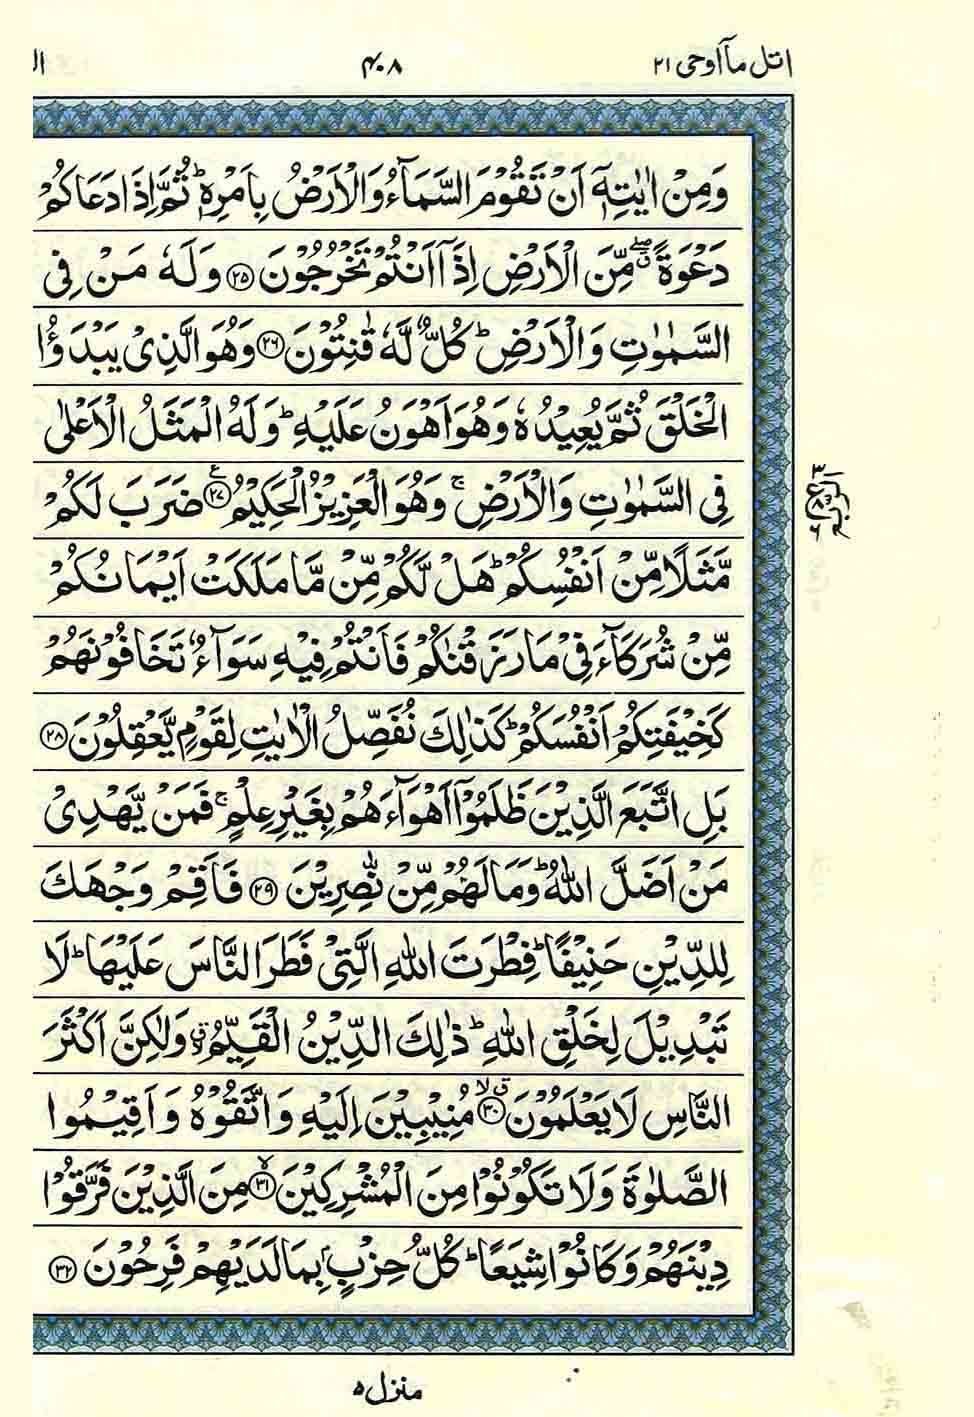 اتل مآ اوحی ۲۱ ۴۰۸ ال
وَمِنْ اٰیٰتِهٖۤ اَنْ تَقُوْمَ السَّمَآءُ وَالْاَرْضُ بِاَمْرِهٖ ؕ ثُمَّ اِذَا دَعَاكُمْ
دَعْوَةً ۖۗ مِّنَ الْاَرْضِ اِذَاۤ اَنْتُمْ تَخْرُجُوْنَ ۝۲۵ وَلَهٗ مَنْ فِی
السَّمٰوٰتِ وَالْاَرْضِ ؕ كُلٌّ لَّهٗ قٰنِتُوْنَ ۝۲۶ وَهُوَ الَّذِیْ یَبْدَؤُا
الْخَلْقَ ثُمَّ یُعِیْدُهٗ وَهُوَ اَهْوَنُ عَلَیْهِ ؕ وَلَهُ الْمَثَلُ الْاَعْلٰی
فِی السَّمٰوٰتِ وَالْاَرْضِ ۚ وَهُوَ الْعَزِیْزُ الْحَكِیْمُ ۝۲۷ ع ضَرَبَ لَكُمْ
مَّثَلًا مِّنْ اَنْفُسِكُمْ ؕ هَلْ لَّكُمْ مِّنْ مَّا مَلَكَتْ اَیْمَانُكُمْ
مِّنْ شُرَكَآءَ فِیْ مَا رَزَقْنٰكُمْ فَاَنْتُمْ فِیْهِ سَوَآءٌ تَخَافُوْنَهُمْ
كَخِیْفَتِكُمْ اَنْفُسَكُمْ ؕ كَذٰلِكَ نُفَصِّلُ الْاٰیٰتِ لِقَوْمٍ یَّعْقِلُوْنَ ۝۲۸
بَلِ اتَّبَعَ الَّذِیْنَ ظَلَمُوْۤا اَهْوَآءَهُمْ بِغَیْرِ عِلْمٍ ۚ فَمَنْ یَّهْدِیْ
مَنْ اَضَلَّ اللّٰهُ ؕ وَمَا لَهُمْ مِّنْ نّٰصِرِیْنَ ۝۲۹ فَاَقِمْ وَجْهَكَ
لِلدِّیْنِ حَنِیْفًا ؕ فِطْرَتَ اللّٰهِ الَّتِیْ فَطَرَ النَّاسَ عَلَیْهَا ؕ لَا
تَبْدِیْلَ لِخَلْقِ اللّٰهِ ؕ ذٰلِكَ الدِّیْنُ الْقَیِّمُ ۙۗ وَلٰكِنَّ اَكْثَرَ
النَّاسِ لَا یَعْلَمُوْنَ ۝۳۰ ۗۙ مُنِیْبِیْنَ اِلَیْهِ وَاتَّقُوْهُ وَاَقِیْمُوا
الصَّلٰوةَ وَلَا تَكُوْنُوْا مِنَ الْمُشْرِكِیْنَ ۝۳۱ ۙ مِنَ الَّذِیْنَ فَرَّقُوْا
دِیْنَهُمْ وَكَانُوْا شِیَعًا ؕ كُلُّ حِزْبٍۭ بِمَا لَدَیْهِمْ فَرِحُوْنَ ۝۳۲
منزل ۵